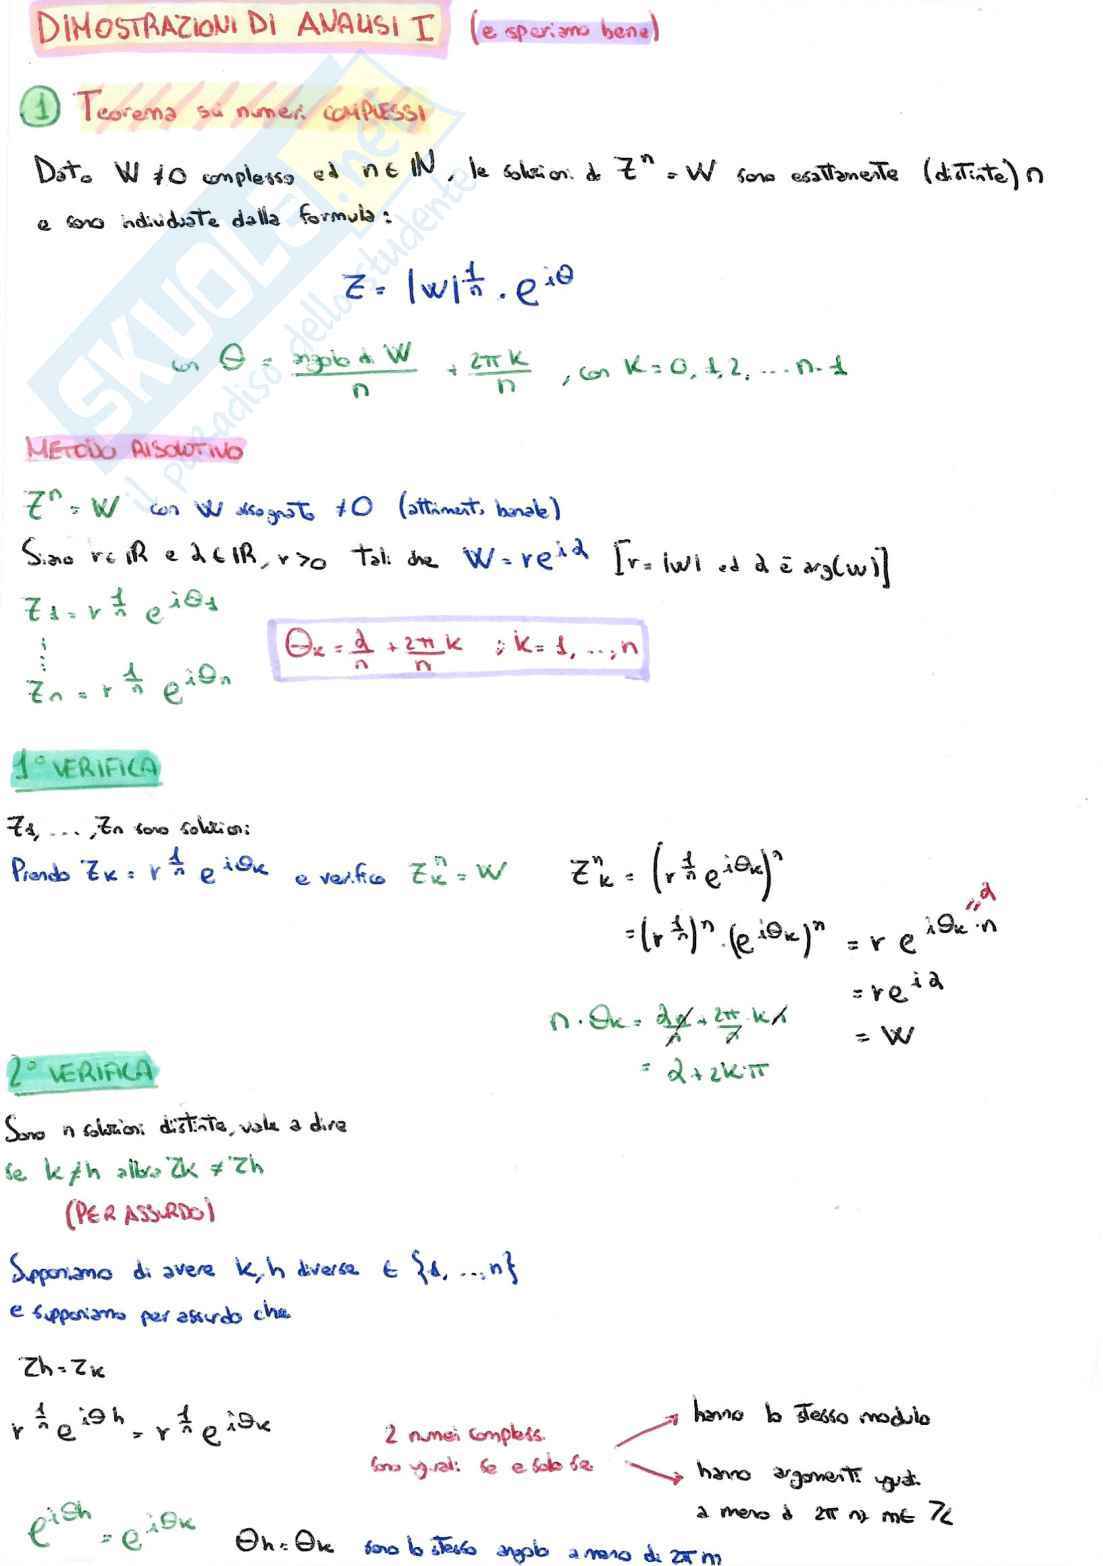 DIMOSTRAZIONI DI ANALISI I (e speriamo bene)
① Teorema sui numeri COMPLESSI
Dato W ≠ 0 complesso ed n ∈ ℕ, le soluzioni di Z^n = W sono esattamente (distinte) n
e sono individuate dalla formula:
Z = |w|^{1/n} · e^{iθ}
con θ = (angolo di W)/n + 2πk/n, con K = 0, 1, 2, ... n-1
METODO RISOLUTIVO
Z^n = W con W assegnato ≠ 0 (altrimenti banale)
Siano r ∈ ℝ e α ∈ ℝ, r > 0 Tali che W = re^{iα} [r = |w| ed α è arg(w)]
Z_1 = r^{1/n} e^{iθ_1}
⋮
Z_n = r^{1/n} e^{iθ_n}
θ_k = α/n + 2π/n k ; k = 1, ..., n
1° VERIFICA
Z_1, ..., Z_n sono soluzioni
Prendo Z_k = r^{1/n} e^{iθ_k} e verifico Z_k^n = W
Z_k^n = (r^{1/n} e^{iθ_k})^n
= (r^{1/n})^n · (e^{iθ_k})^n = r e^{iθ_k · n} "α
= re^{iα}
n · θ_k = αn/n + 2π/n · k n
= W
= α + 2kπ
2° VERIFICA
Sono n soluzioni distinte, vale a dire
se k ≠ h allora Zk ≠ Zh
(PER ASSURDO)
Supponiamo di avere k, h diverse ∈ {1, ..., n}
e supponiamo per assurdo che
Zh = Zk
r^{1/n} e^{iθh} = r^{1/n} e^{iθk}
2 numeri complessi
sono uguali se e solo se
hanno lo stesso modulo
hanno argomenti uguali
a meno di 2π m m ∈ ℤ
e^{iθh} = e^{iθk}
θh = θk sono lo stesso angolo a meno di 2π m
SKUOLA.net
il paradiso dello studente